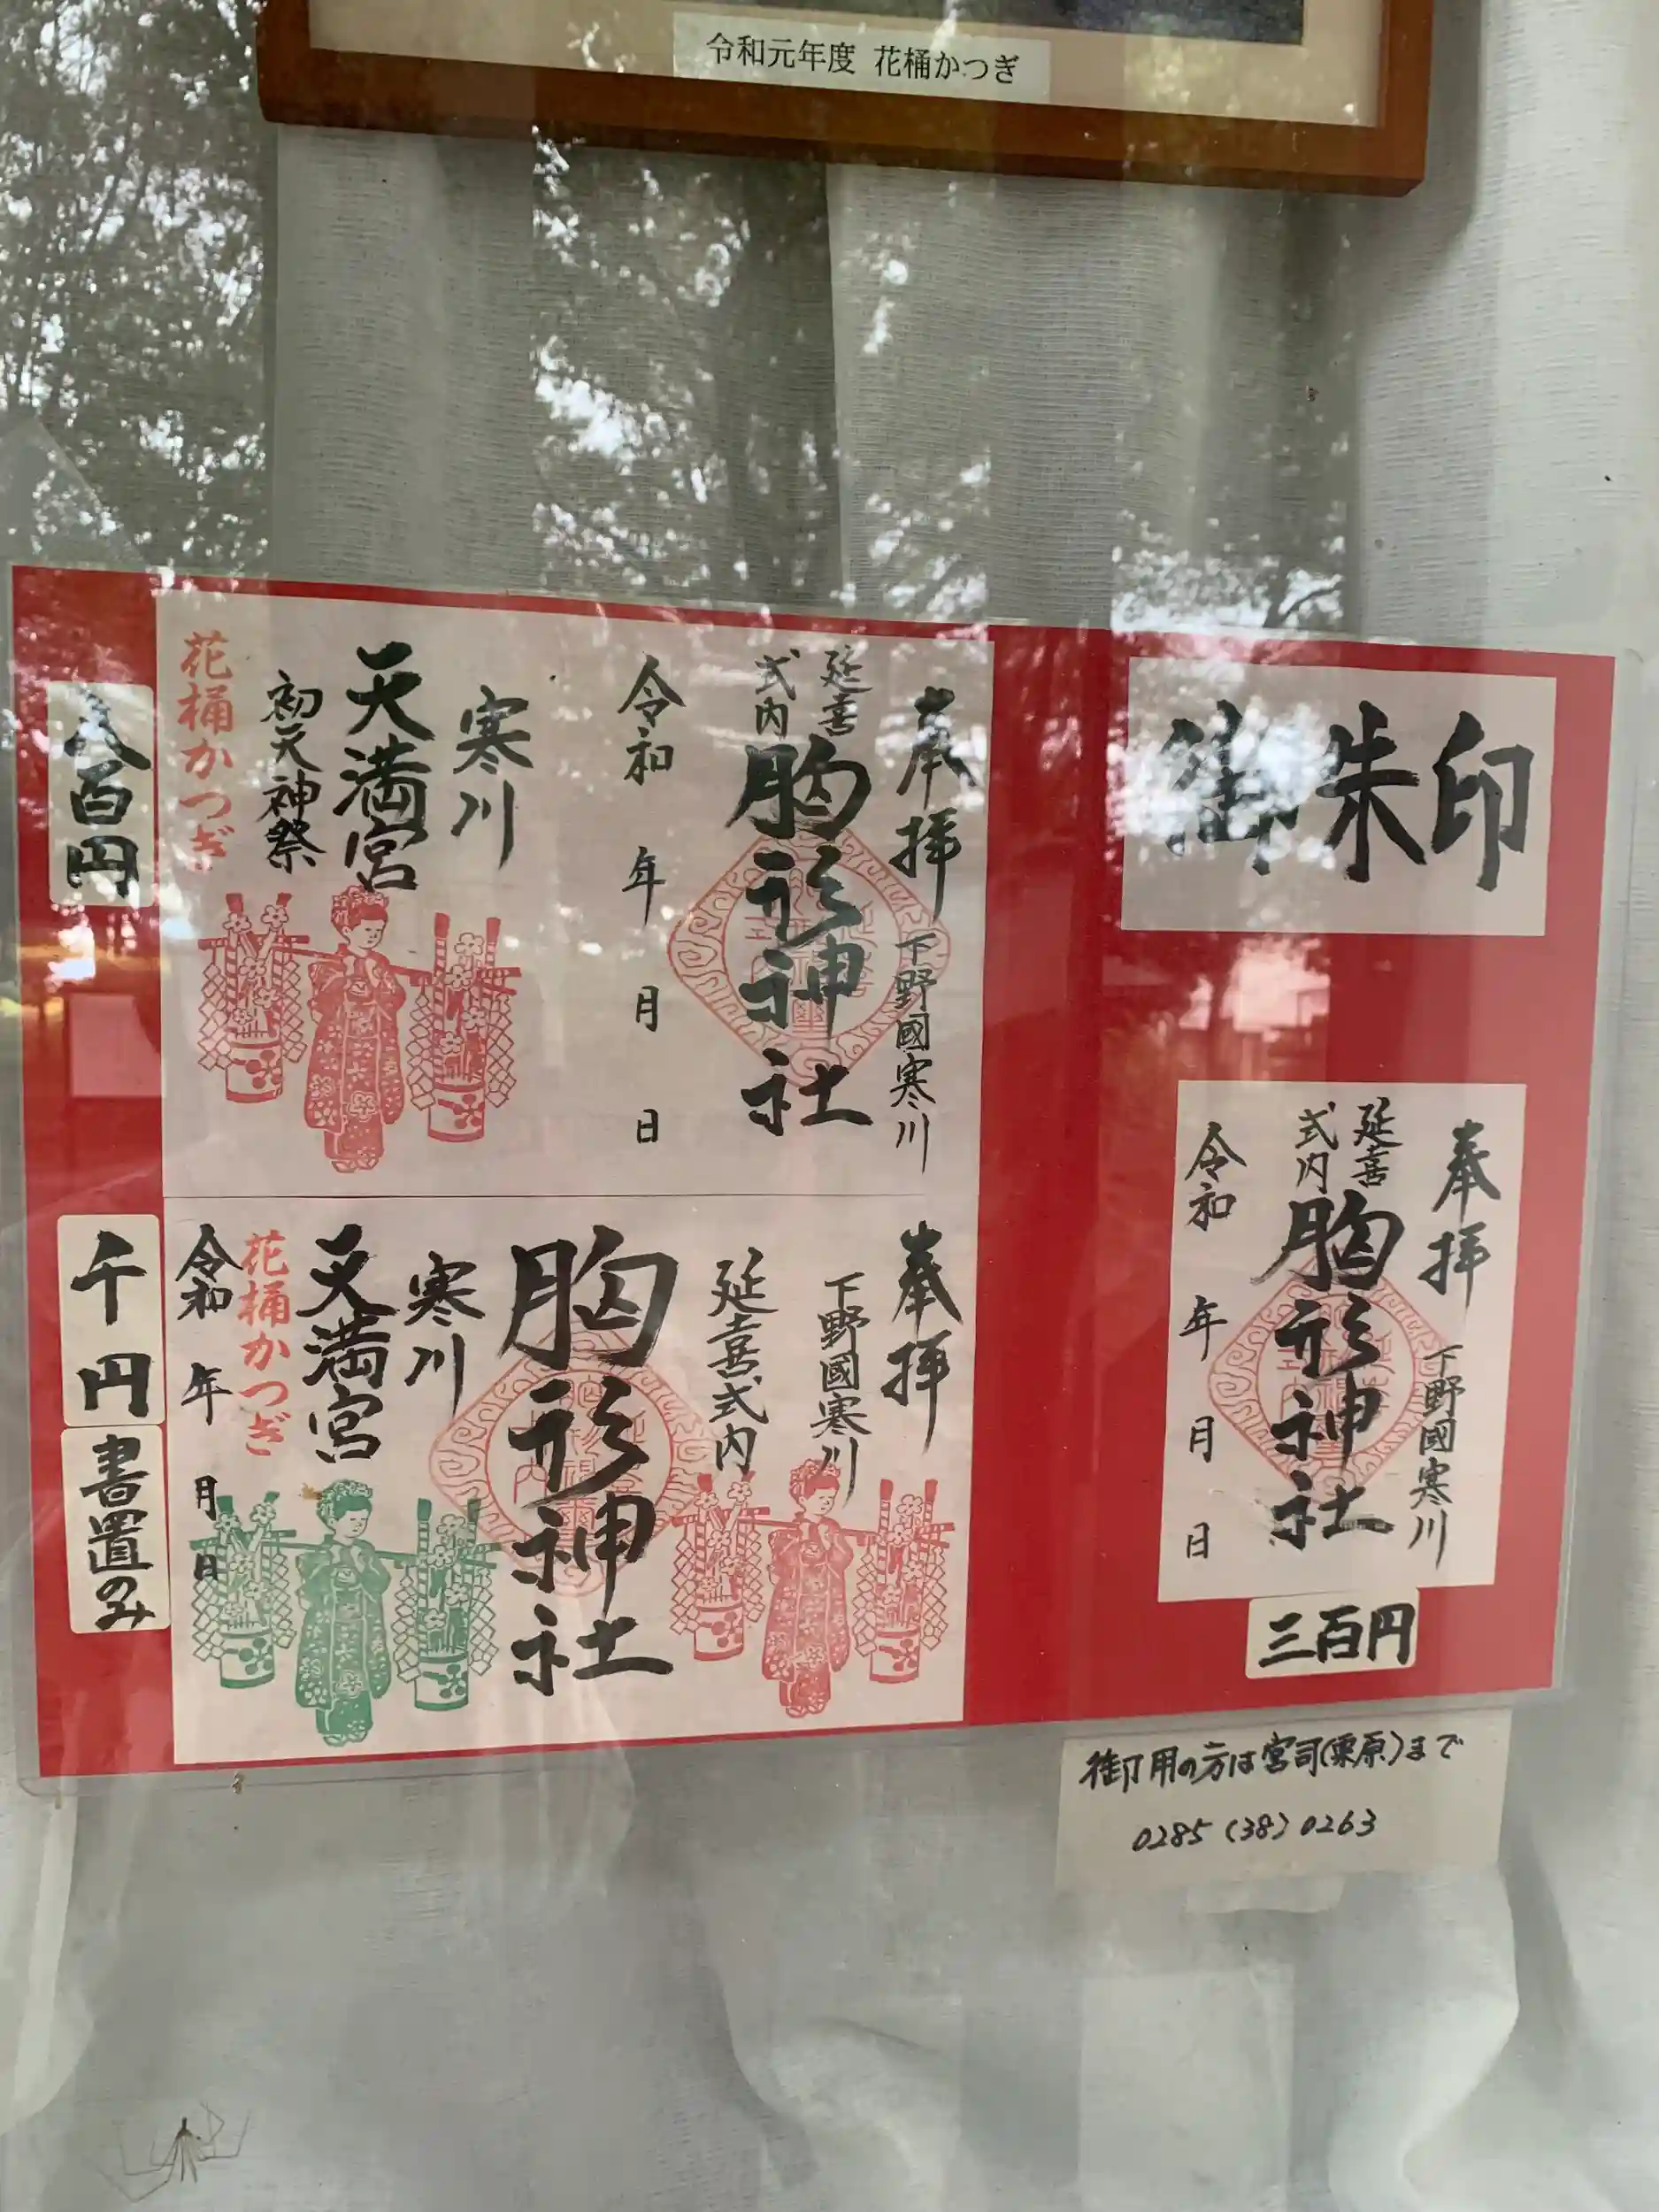 令和元年度 花桶かつぎ
御朱印
奉拝
下野國寒川
延喜
式内
胸形神社
令和 年 月 日
三百円
奉拝
下野國寒川
延喜
式内
胸形神社
令和 年 月 日
寒川
天満宮
初天神祭
花桶かつぎ
八百円
奉拝
下野國寒川
延喜式内
胸形神社
寒川
天満宮
花桶かつぎ
令和 年 月 日
千円
書置のみ
御用の方は宮司(栗原)まで
0285(38)0263